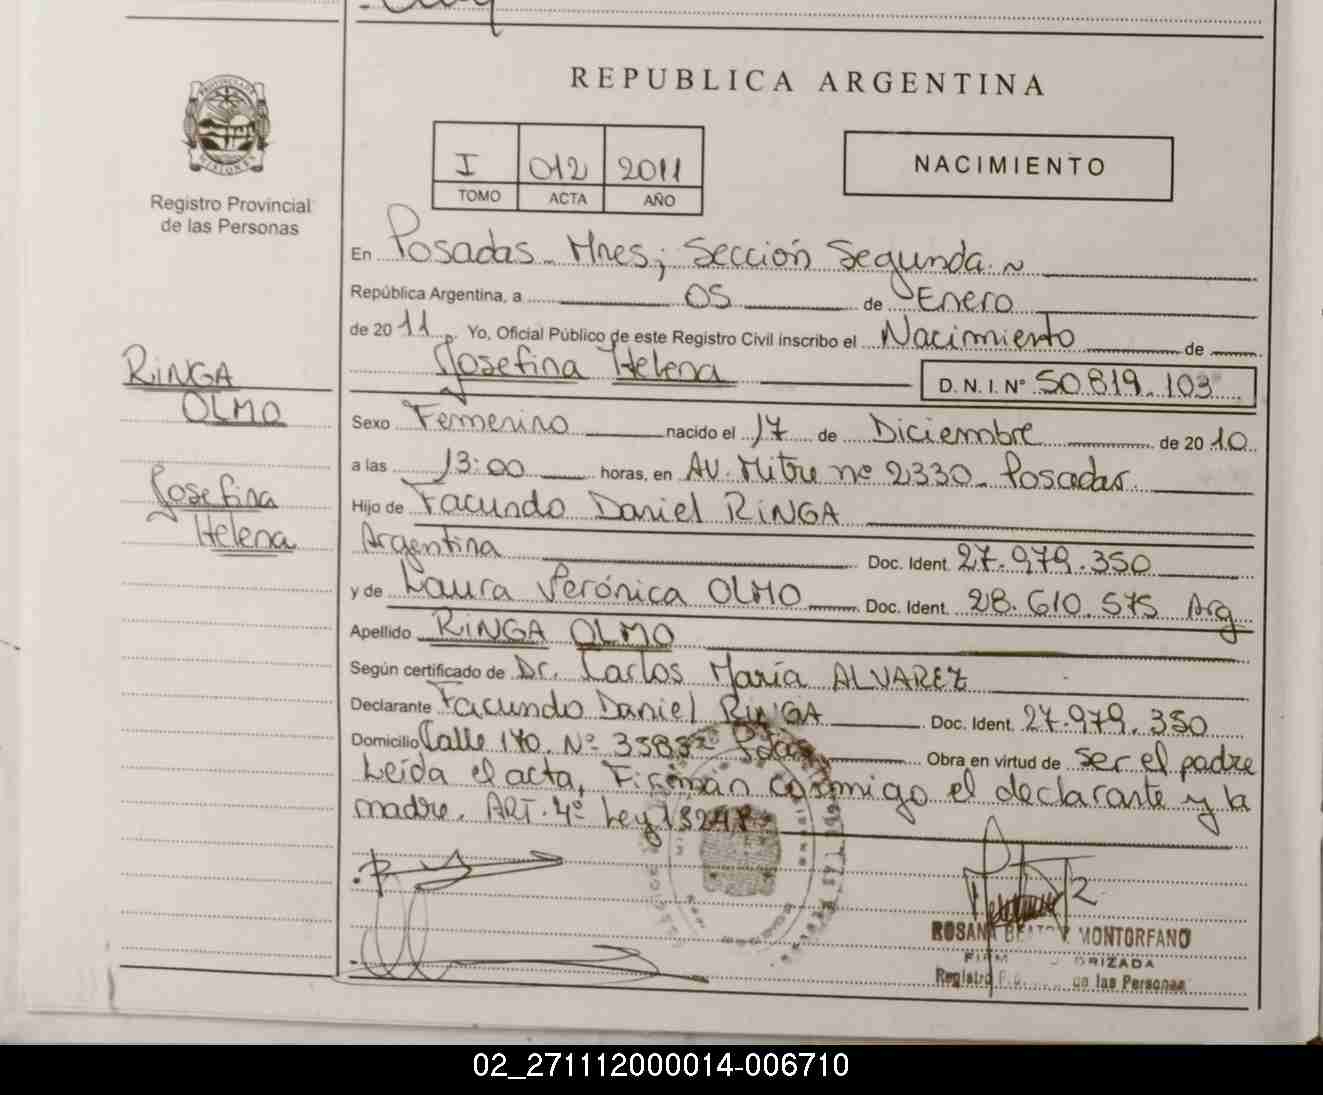 REPUBLICA ARGENTINA
I 012 2011
TOMO ACTA AÑO
NACIMIENTO
Registro Provincial
de las Personas
En Posadas - Mnes; Sección Segunda. ~
República Argentina, a 05 de Enero
de 2011. Yo, Oficial Público de este Registro Civil inscribo el Nacimiento de
Josefina Helena
D. N. I. Nº 50.819.103
RINGA
OLMO
Josefina
Helena
Sexo Femenino nacido el 17 de Diciembre de 2010
a las 13:00 horas, en AV. Mitre nº 2330 - Posadas.
Hijo de Facundo Daniel RINGA
Argentina Doc. Ident. 27.979.350
y de Laura Verónica OLMO Doc. Ident. 28.610.575 Arg
Apellido RINGA OLMO
Según certificado de Dr. Carlos María ALVAREZ
Declarante Facundo Daniel RINGA Doc. Ident. 27.979.350
Domicilio Calle 170. Nº Pdas Obra en virtud de ser el padre
Leída el acta, Firman conmigo el declarante y la
madre. ART. 4º Ley
ROSANA MONTORFANO
Registro de las Personas
02_271112000014-006710